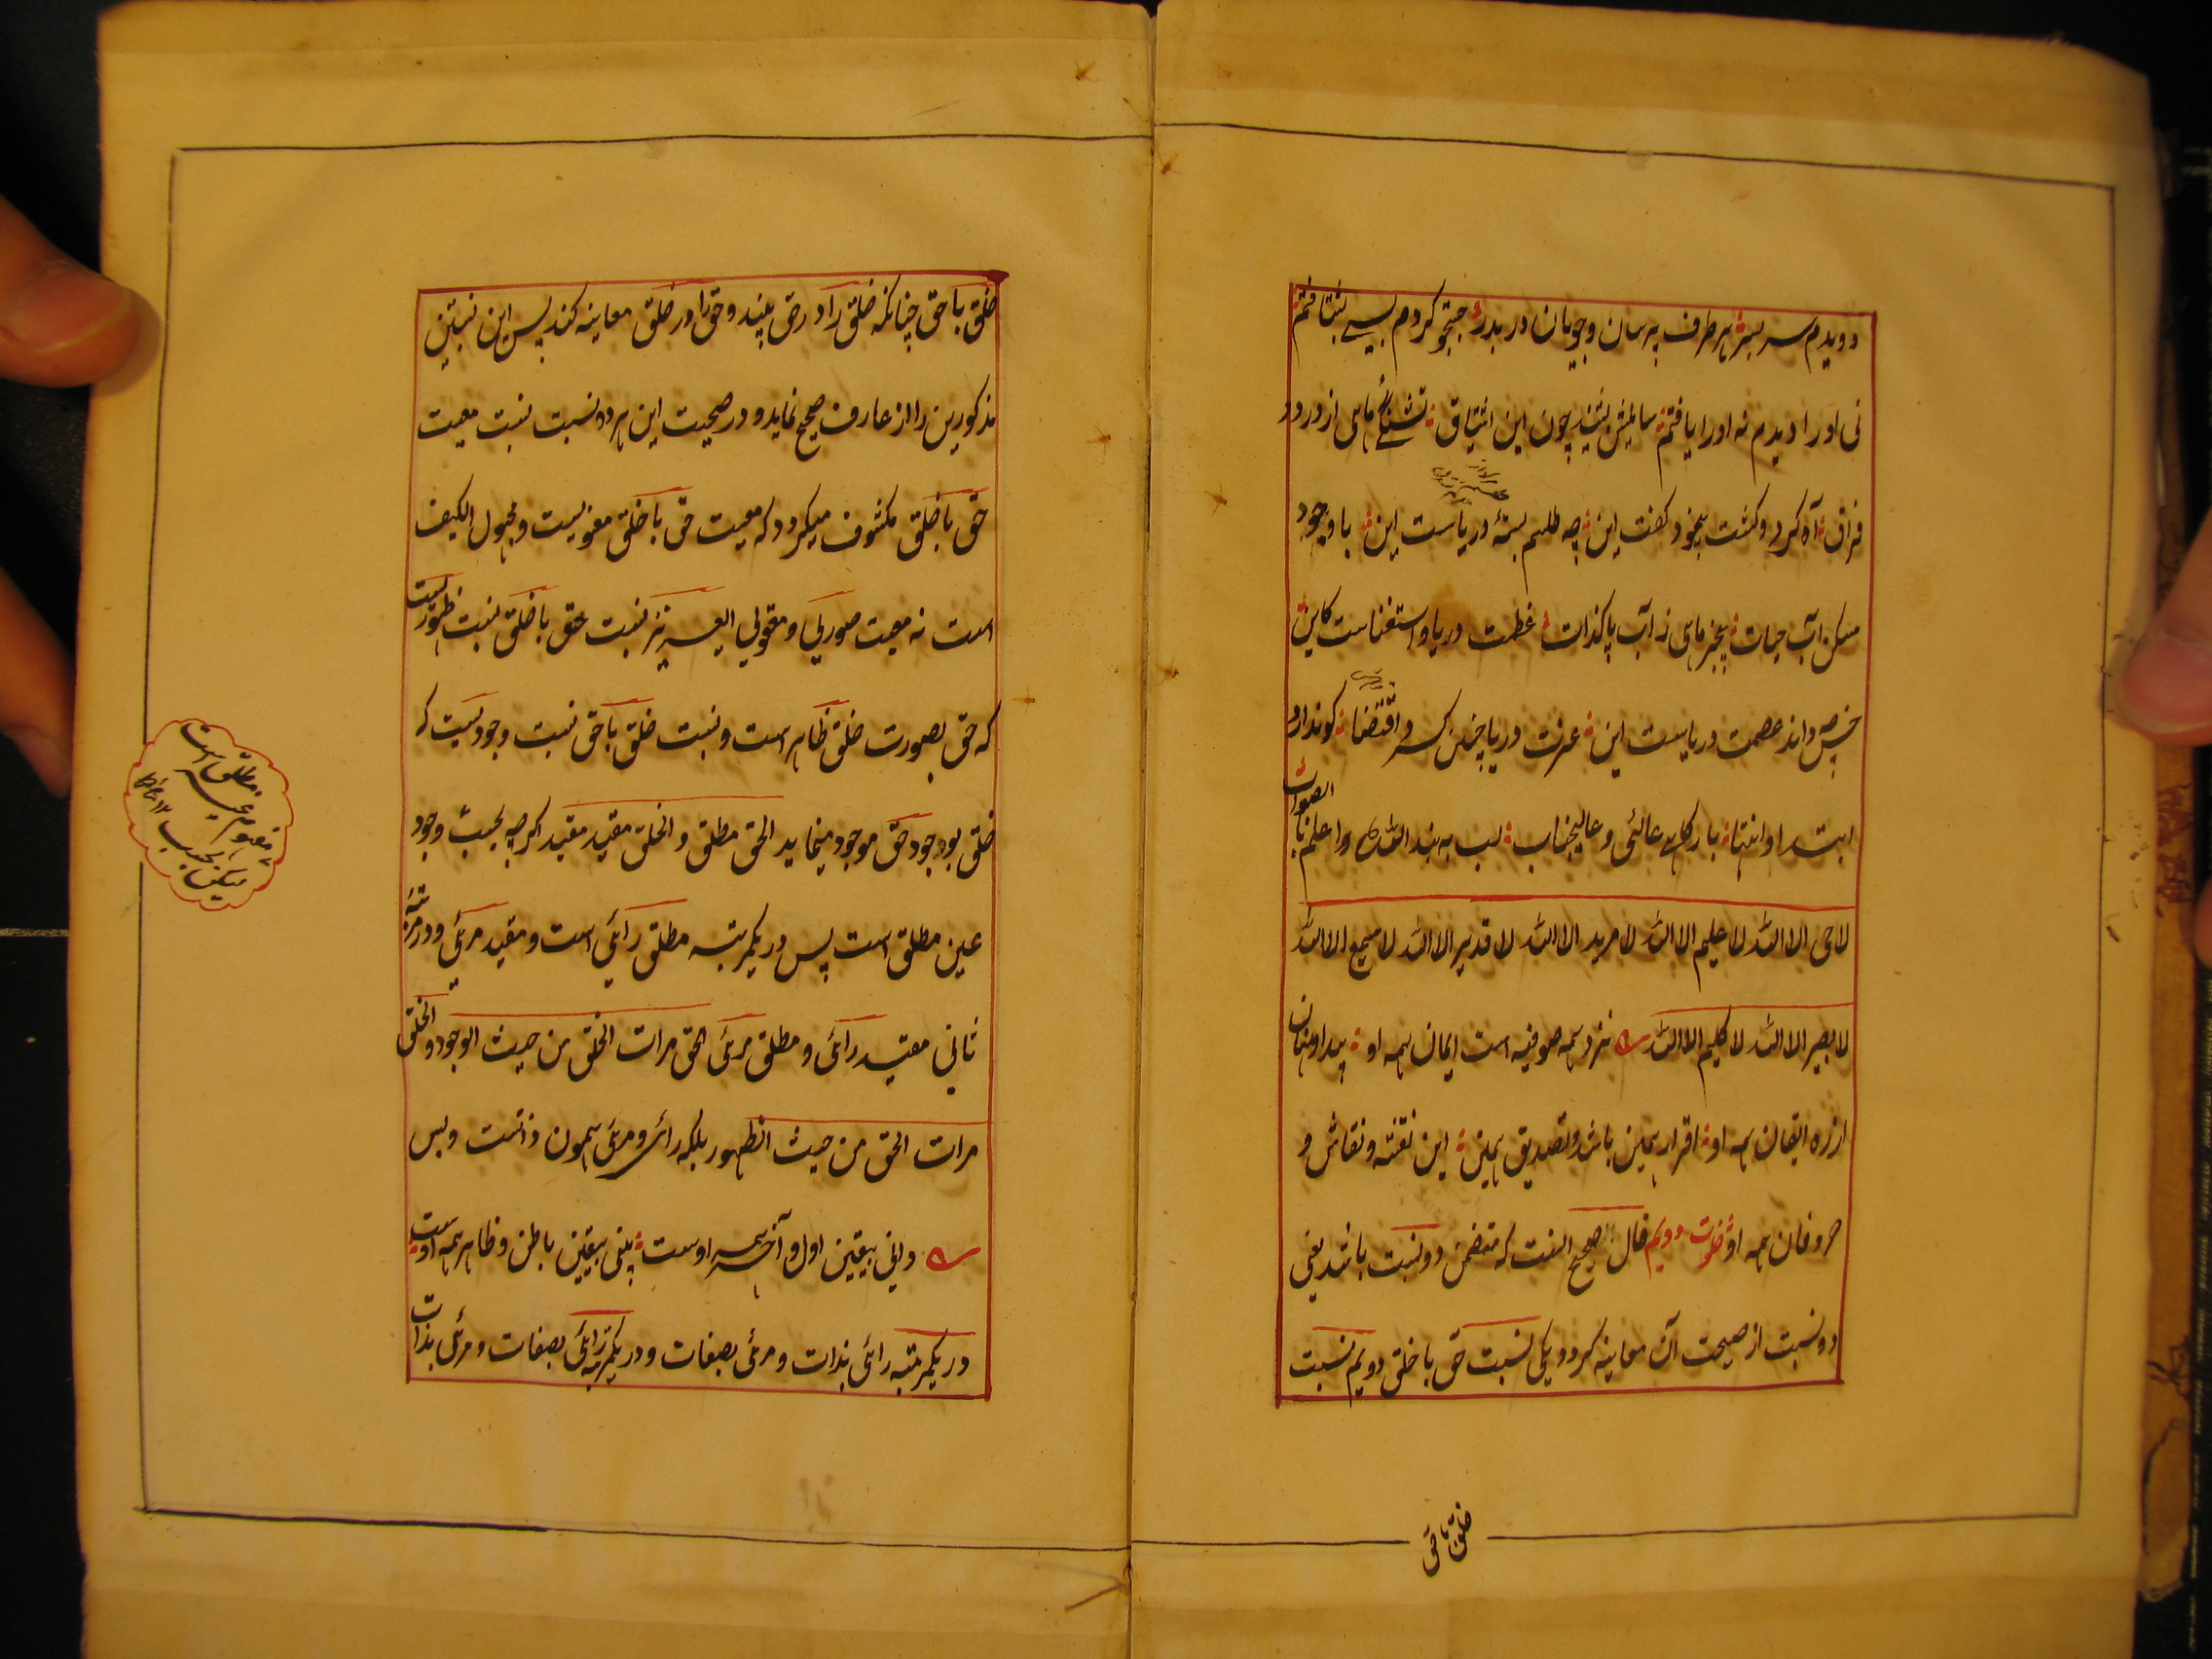 دویدم سر بسر هر طرف پرسان و جویان در بدر جستجو کردم بسے بشتافتم
نی او را دیدم نه او را یافتم سائلش بشنید چون این اشتیاق تشنگے ماہی از درد
فراق آه کرد و گشت بیخود گفت این چه طلسم بستهٔ دریاست این با وجود
مسکن آب حیات بیخبر ماہی ز آب پاکذات عظمت دریا و استغناست کاین
خس چه داند عصمت دریاست این عزت دریا چنین کرد اقتضا کو ندارد
ابتدا و انتها بارگاہے عالئی و عالیجناب لب به بند الله وا علم بالصواب
لا حی الا الله لا علیم الا الله لا مرید الا الله لا قدیر الا الله لا سمیع الا الله
لا بصیر الا الله لا کلیم الا الله نزد همه صوفیه است ایمان همه او پیدا و نهان
از ره ایقان همه او اقرار همین باشد و تصدیق همین این نقشه و نقاش و
حروفان همه او خلوت دویم قال صحیح آنست که متضمن دو نسبت باشد یعنی
دو نسبت از صحیحت آن معاینه گردد یکی نسبت حق با خلق دویم نسبت
خلق با حق
خلق با حق چنانکه خلق را در حق بیند و حق را در خلق معاینه کند پس این نسبتین
مذکورین را از عارف صحیح نماید و در صحیحت این هر دو نسبت نسبت معیت
حق با خلق مکشوف میگردد که معیت حق با خلق معنویست و مجهول الکیف
است نه معیت صوری و مقولی العزیز نسبت حق با خلق نسبت ظهوریست
که حق بصورت خلق ظاهر است و نسبت خلق با حق نسبت وجودیست که
خلق بوجود حق موجود مینماید الحق مطلق و الخلق مقید مقید اگرچه بحیث وجود
عین مطلق است پس در یکمرتبه مطلق رائی است و مقید مرئی و در مرتبهٔ
ثانی مقید رائی و مطلق مرئی الحق مرات الخلق من حیث الوجود و الخلق
مرات الحق من حیث الظهور بلکه رائی و مرئی همون ذاتست و بس
دانی بیقین اول و آخر همه اوست بینی بیقین باطن و ظاهر همه اوست
در یکمرتبه رائی بذات و مرئی بصفات و در یکمرتبه رائی بصفات و مرئی بذات
مطلق است
لیکن بحسب